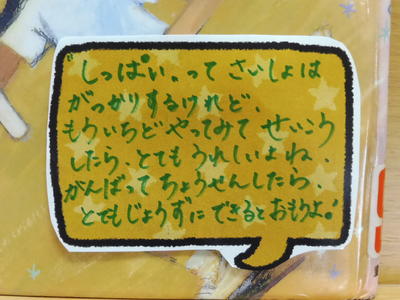 "しっぱい„って さいしょは
がっかりするけれど、
もういちど やってみて せいこう
したら、とても うれしいよね、
がんばって ちょうせんしたら、
とてもじょうずに できるとおもうよ!